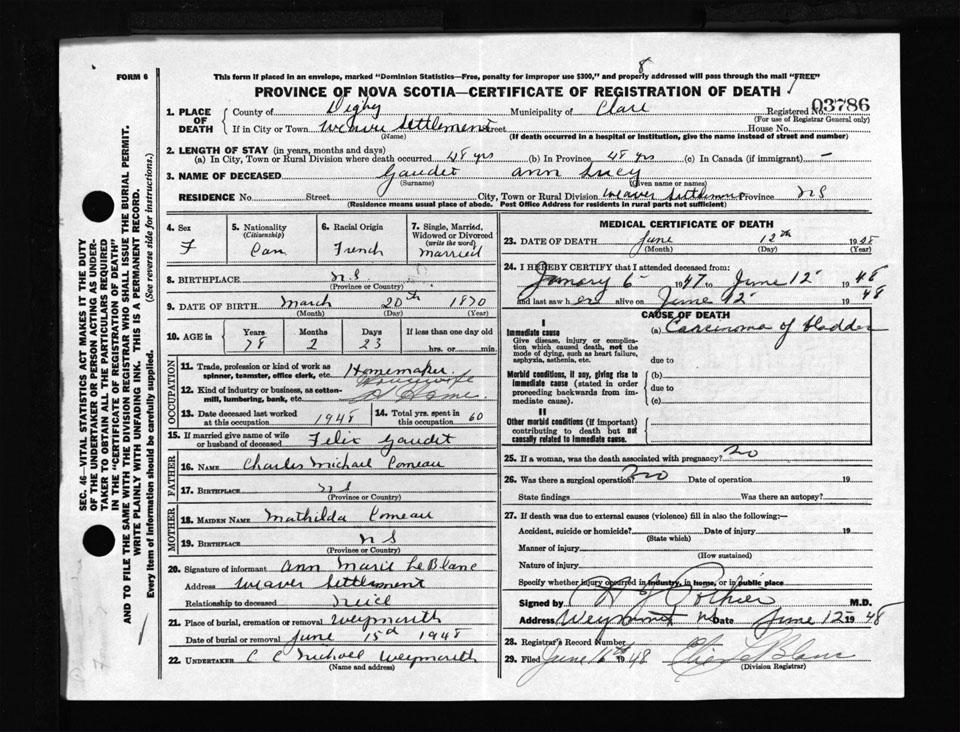 8
FORM 6
This form if placed in an envelope, marked "Dominion Statistics—Free, penalty for improper use $300," and properly addressed will pass through the mail "FREE"
PROVINCE OF NOVA SCOTIA—CERTIFICATE OF REGISTRATION OF DEATH
1. PLACE OF DEATH
County of Digby Municipality of Clare Registered No. 03786
(For use of Registrar General only)
If in City or Town Weaver Settlement Street House No.
(Name) (If death occurred in a hospital or institution, give the name instead of street and number)
2. LENGTH OF STAY (in years, months and days)
(a) In City, Town or Rural Division where death occurred 48 yrs (b) In Province 48 yrs (c) In Canada (if immigrant) —
3. NAME OF DECEASED Gaudet Ann Lucy
(Surname) (Given name or names)
RESIDENCE No. Street City, Town or Rural Division Weaver Settlement Province N S
(Residence means usual place of abode. Post Office Address for residents in rural parts not sufficient)
4. Sex
F
5. Nationality
(Citizenship)
Can
6. Racial Origin
French
7. Single, Married, Widowed or Divorced
(write the word)
Married
8. BIRTHPLACE N.S.
(Province or Country)
9. DATE OF BIRTH March 20th 1870
(Month) (Day) (Year)
10. AGE in
Years Months Days If less than one day old
78 2 23 hrs. or min.
OCCUPATION
11. Trade, profession or kind of work as spinner, teamster, office clerk, etc. Homemaker
Housewife
12. Kind of industry or business, as cotton-mill, lumbering, bank, etc. Home
13. Date deceased last worked at this occupation 1948
14. Total yrs. spent in 60
15. If married give name of wife or husband of deceased Felix Gaudet
FATHER
16. NAME Charles Michael Comeau
17. BIRTHPLACE N S
(Province or Country)
MOTHER
18. MAIDEN NAME Mathilda Comeau
19. BIRTHPLACE N S
(Province or Country)
20. Signature of informant Ann Marie LeBlanc
Address Weaver Settlement
Relationship to deceased Niece
21. Place of burial, cremation or removal Weymouth
Date of burial or removal June 15d 1948
22. UNDERTAKER C C Nicholl Weymouth
(Name and address)
MEDICAL CERTIFICATE OF DEATH
23. DATE OF DEATH June 12th 1948
(Month) (Day) (Year)
24. I HEREBY CERTIFY that I attended deceased from:
January 6 1947 to June 12 1948
and last saw her alive on June 12 1948
CAUSE OF DEATH
I
Immediate cause (a) Carcinoma of bladder
Give disease, injury or complication which caused death, not the mode of dying, such as heart failure, asphyxia, asthenia, etc.
due to
Morbid conditions, if any, giving rise to immediate cause (stated in order proceeding backwards from immediate cause).
(b)
due to
(c)
II
Other morbid conditions (if important) contributing to death but not causally related to immediate cause.
25. If a woman, was the death associated with pregnancy? No
26. Was there a surgical operation? No Date of operation 19
State findings Was there an autopsy?
27. If death was due to external causes (violence) fill in also the following:—
Accident, suicide or homicide? Date of injury 19
(State which)
Manner of injury
(How sustained)
Nature of injury
Specify whether injury occurred in industry, in home, or in public place
Signed by H J Pothier M.D.
Address Weymouth NS Date June 12 1948
28. Registrar's Record Number
29. Filed June 16th 1948 LeBlanc
(Division Registrar)
SEC. 46—VITAL STATISTICS ACT MAKES IT THE DUTY
OF THE UNDERTAKER OR PERSON ACTING AS UNDER-
TAKER TO OBTAIN ALL THE PARTICULARS REQUIRED
IN THE "CERTIFICATE OF REGISTRATION OF DEATH"
AND TO FILE THE SAME WITH THE DIVISION REGISTRAR WHO SHALL ISSUE THE BURIAL PERMIT.
WRITE PLAINLY WITH UNFADING INK. THIS IS A PERMANENT RECORD.
Every item of information should be carefully supplied. (See reverse side for instructions.)